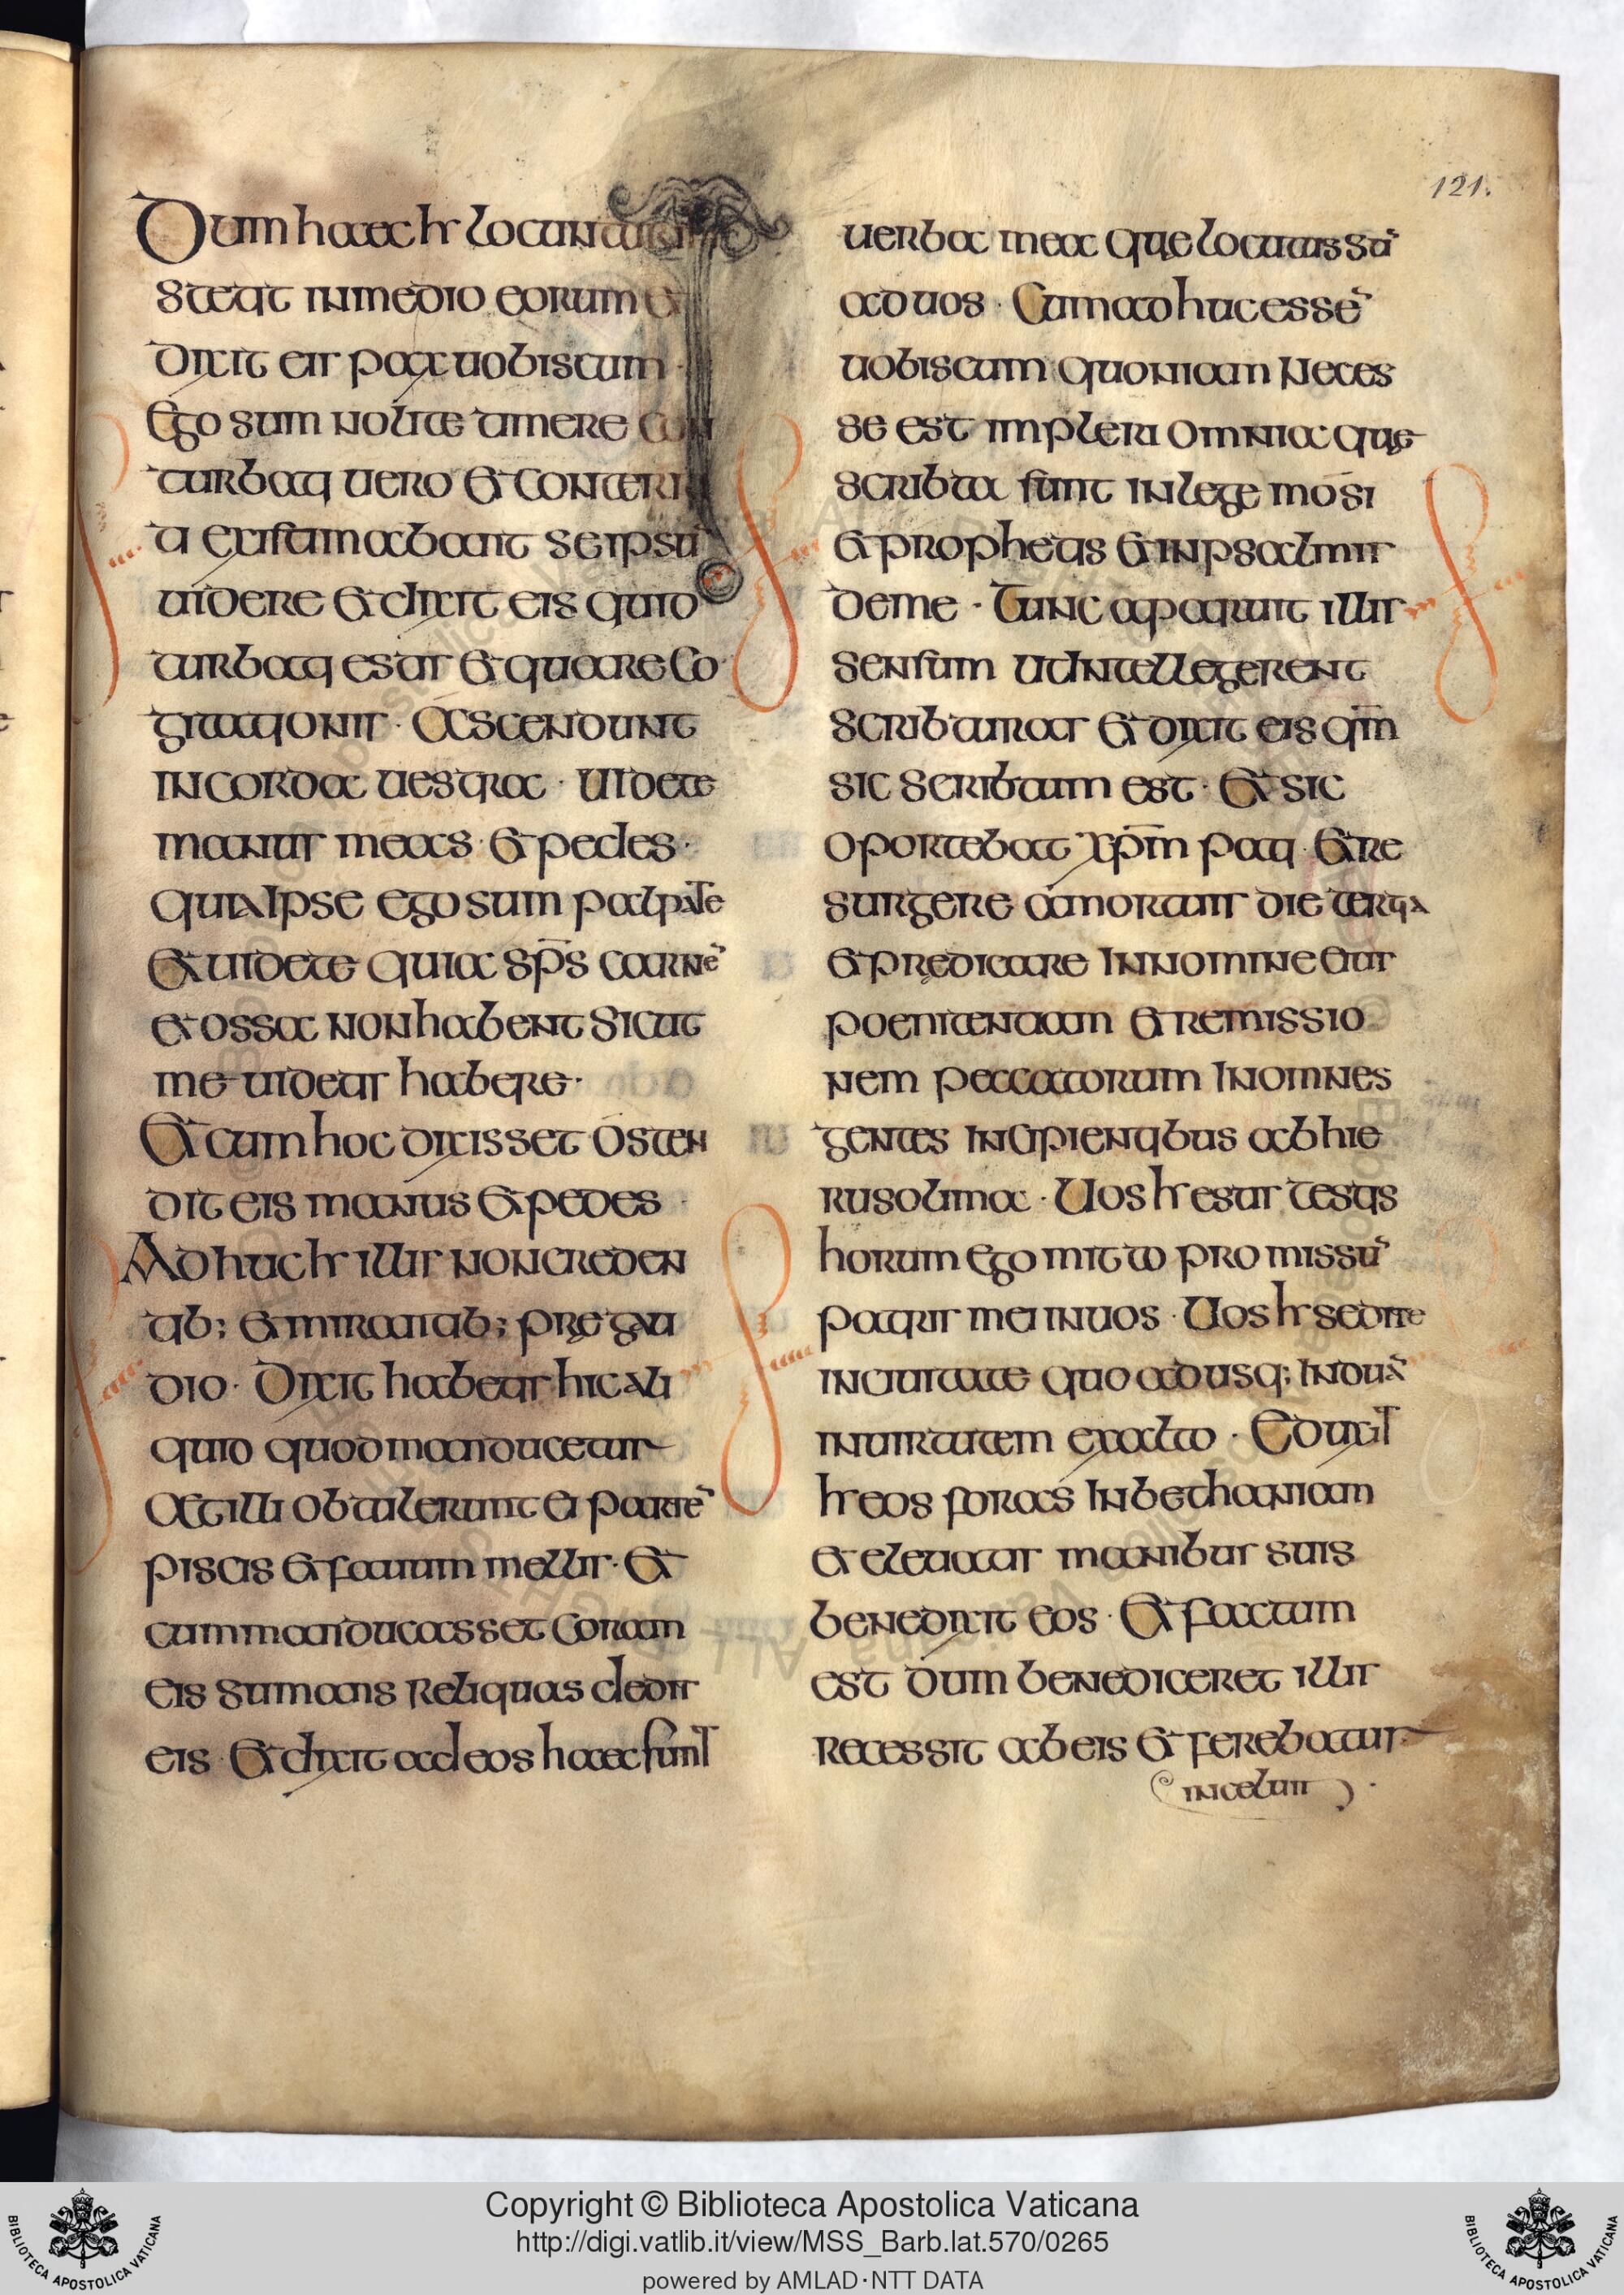 121.
Dum haec hr locuntur
Stetit in medio eorum et
dixit eis pax uobiscum
Ego sum nolite timere con
turbati uero et conterri
ti existimabant se ip̄su
uidere et dixit eis quid
turbati estis et quare co
gitationis · Ascendunt
in corda uestra · Uidete
manus meas · et pedes ·
quia ipse ego sum palpate
et uidete quia sp̄s carnē
et ossa non habent sicut
me uidetis habere ·
Et cum hoc dixisset osten
dit eis manus et pedes ·
Adhuc hr illis non creden
tib; et mirantib; prę gau
dio · Dixit habetis hic ali
quid quod manducetur
At illi obtulerunt ei partē
piscis et fauum mellis · Et
cum manducasset coram
eis sumans reliquas dedit
eis · Et dixit ad eos haec sunt
uerba mea quę locutus sū
ad uos · Cum adhuc essē
uobiscum quoniam neces
se est impleri omnia quę
scribta sunt in lege mosi
et prophetis et in psalmis
de me · Tunc aparuit illis
sensum ut intellegerent
scribturas et dixit eis qm̄
sic scribtum est · Et sic
oportebat xp̄m pati et re
surgere a mortuis die tertia
et predicare in nomine eius
poenitentiam et remissio
nem peccatorum in omnes
gentes incipientibus ab hie
rusolima · Uos hr estis testis
horum ego mitto promissū
patris mei in uos · Uos hr sedite
in ciuitate quo adusq; induā
in uirtutem ex alto · Eduxit
hr eos foras in bethaniam
et eleuatis manibus suis
benedixit eos · Et factum
est dum benediceret illis
recessit ab eis et ferebatur
in celum
Copyright © Biblioteca Apostolica Vaticana
http://digi.vatlib.it/view/MSS_Barb.lat.570/0265
powered by AMLAD·NTT DATA
BIBLIOTECA APOSTOLICA VATICANA
BIBLIOTECA APOSTOLICA VATICANA